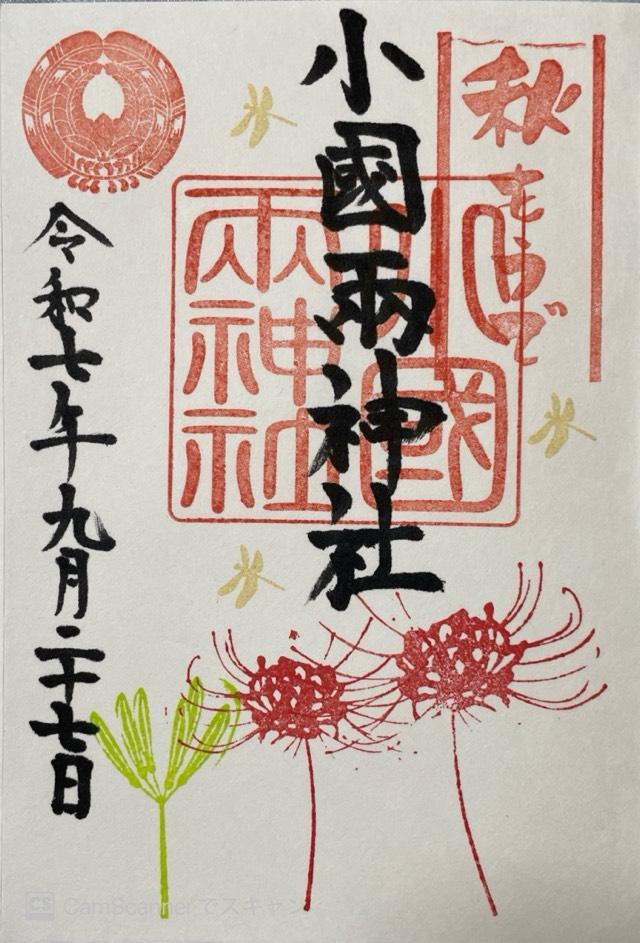 秋もうで
小國兩神社
小國
兩神社
令和七年九月二十七日
CS CamScannerでスキャン